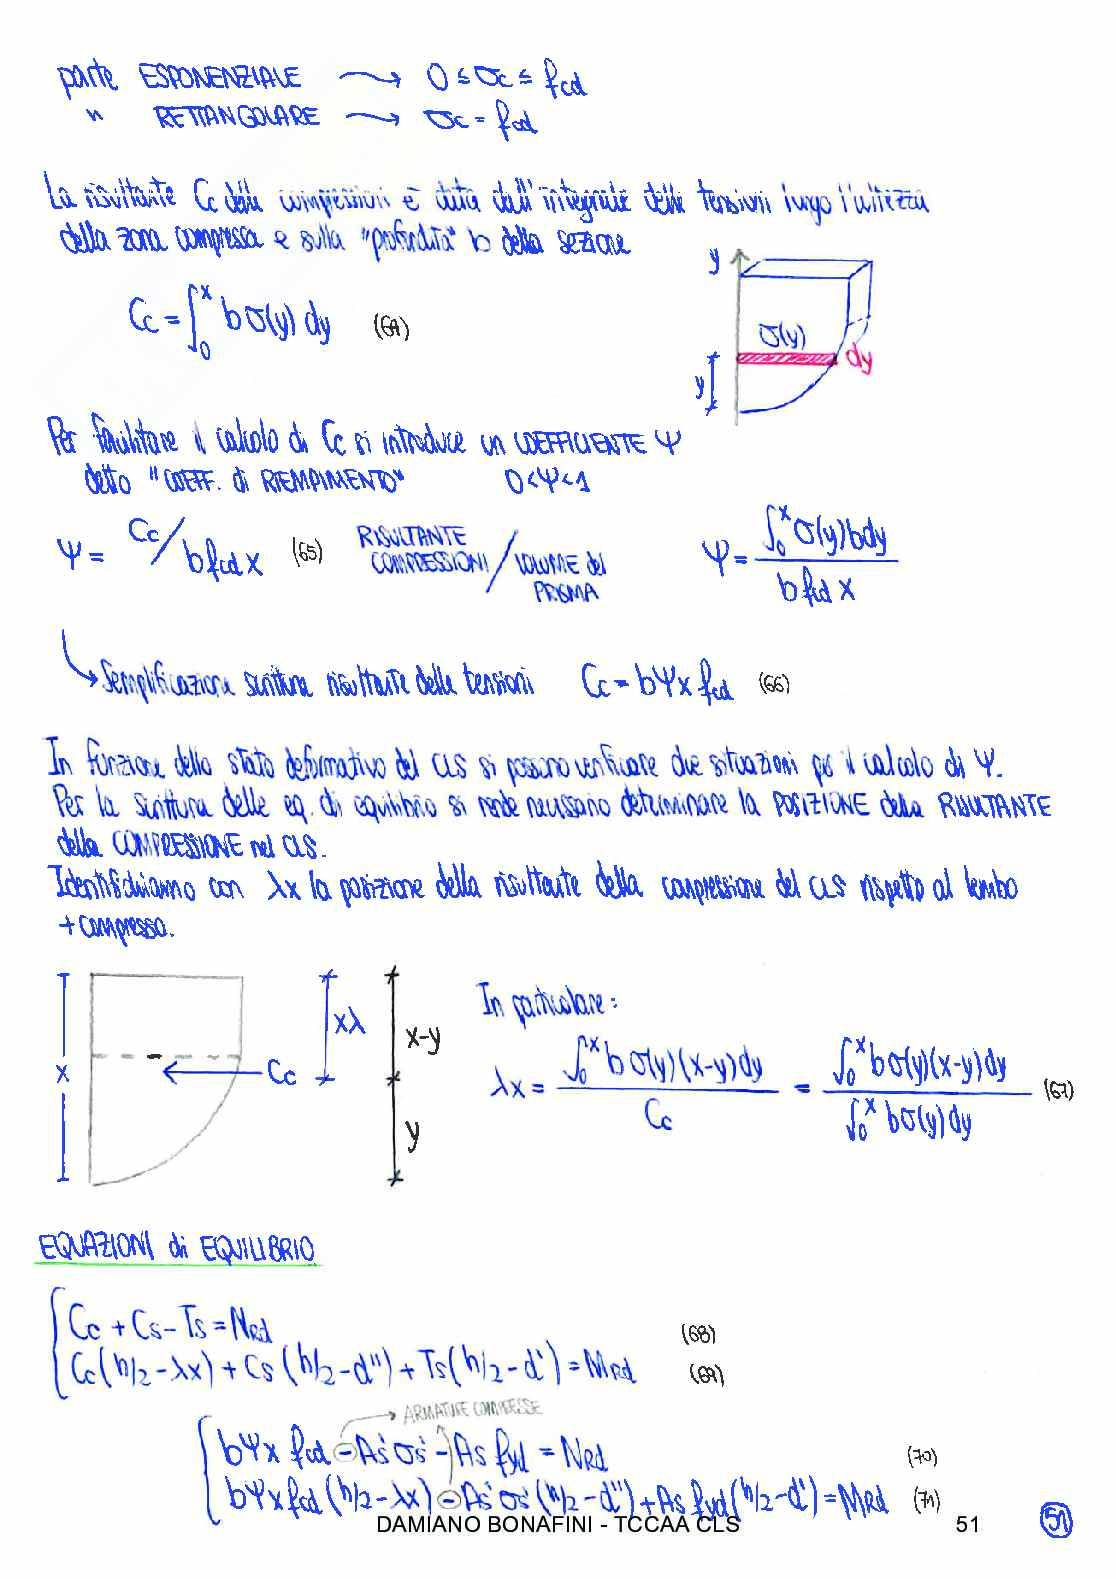 parte ESPONENZIALE → 0 ≤ σc ≤ fcd
" RETTANGOLARE → σc = fcd
La risultante Cc delle compressioni è data dall'integrale delle tensioni lungo l'altezza
della zona compressa e sulla "profondità" b della sezione
y
Cc = ∫₀ˣ b σ(y) dy (64)
σ(y)
dy
y
Per facilitare il calcolo di Cc si introduce un COEFFICIENTE Ψ
detto "COEFF. di RIEMPIMENTO" 0<Ψ<1
Ψ = Cc / b fcd x (65) RISULTANTE COMPRESSIONI / VOLUME del PRISMA Ψ = ∫₀ˣ σ(y) b dy / b fcd x
Semplificazione scrittura risultante delle tensioni Cc = bΨx fcd (66)
In funzione dello stato deformativo del CLS si possono verificare due situazioni per il calcolo di Ψ.
Per la scrittura delle eq. di equilibrio si rende necessario determinare la POSIZIONE della RISULTANTE
della COMPRESSIONE nel CLS.
Identifichiamo con λx la posizione della risultante della compressione del CLS rispetto al lembo
+ compresso.
x
Cc
xλ
x-y
y
In particolare:
λx = ∫₀ˣ b σ(y)(x-y)dy / Cc = ∫₀ˣ b σ(y)(x-y)dy / ∫₀ˣ b σ(y) dy (67)
EQUAZIONI di EQUILIBRIO
Cc + Cs - Ts = NRd (68)
Cc(h/2 - λx) + Cs (h/2 - d'') + Ts(h/2 - d') = MRd (69)
→ ARMATURE COMPRESSE
bΨx fcd - As' σs' - As fyd = NRd (70)
bΨx fcd (h/2 - λx) - As' σs' (h/2 - d'') + As fyd (h/2 - d') = MRd (71)
DAMIANO BONAFINI - TCCAA CLS 51
51